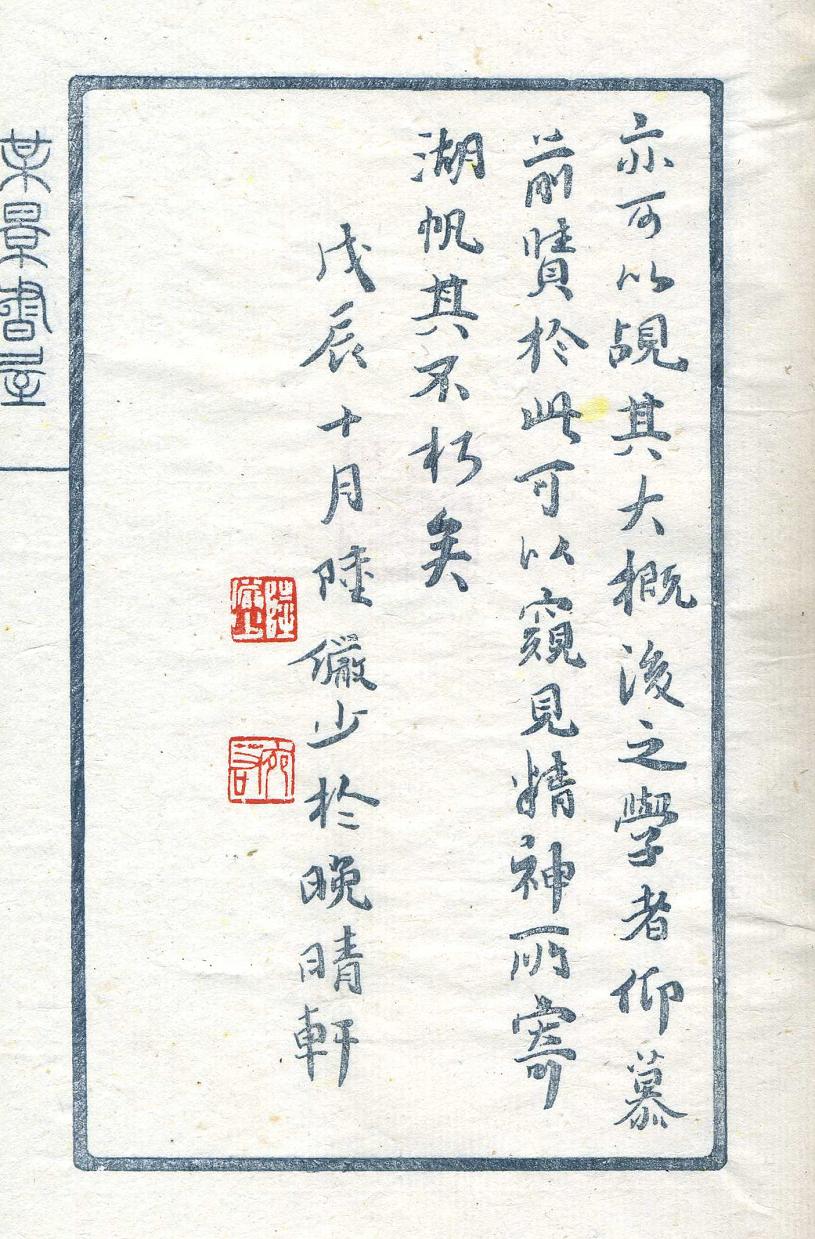 亦可以覘其大概後之學者仰慕
前賢於此可以窺見精神所寄
湖帆其不朽矣
戊辰十月陸儼少於晚晴軒
陸儼少
宛若
某景書屋